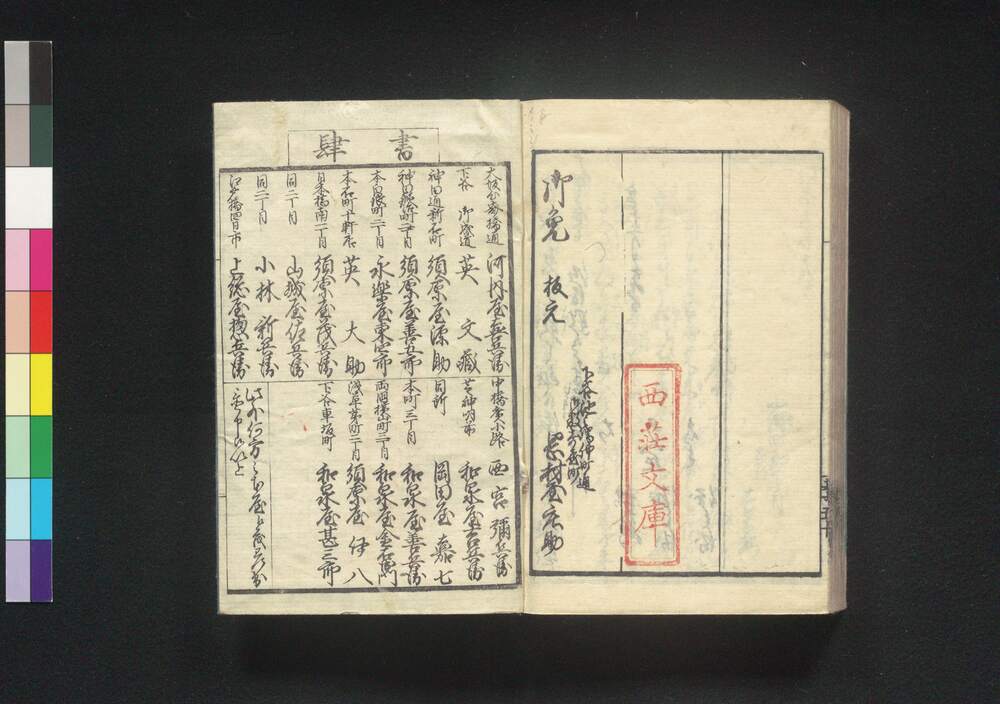 御免
板元
下谷池之端仲町通
岡村屋庄助
西荘文庫
書肆
大坂心斎橋通 河内屋喜兵衛
下谷 御成道 英 文蔵
神田通新石町 須原屋源助
神田鍛冶町二丁目 須原屋善五郎
本白銀町二丁目 永楽屋東四郎
本石町十軒店 英 大助
日本橋南一丁目 須原屋茂兵衛
同二丁目 山城屋佐兵衛
同二丁目 小林 新兵衛
江戸橋四日市 上総屋惣兵衛
中橋広小路 西宮 彌兵衛
芝神明前 和泉屋吉兵衛
同所 岡田屋 嘉七
本町三丁目 和泉屋善兵衛
両国横山町三丁目 和泉屋金右衛門
浅草茅町二丁目 須原屋 伊八
下谷車坂町 和泉屋甚三郎